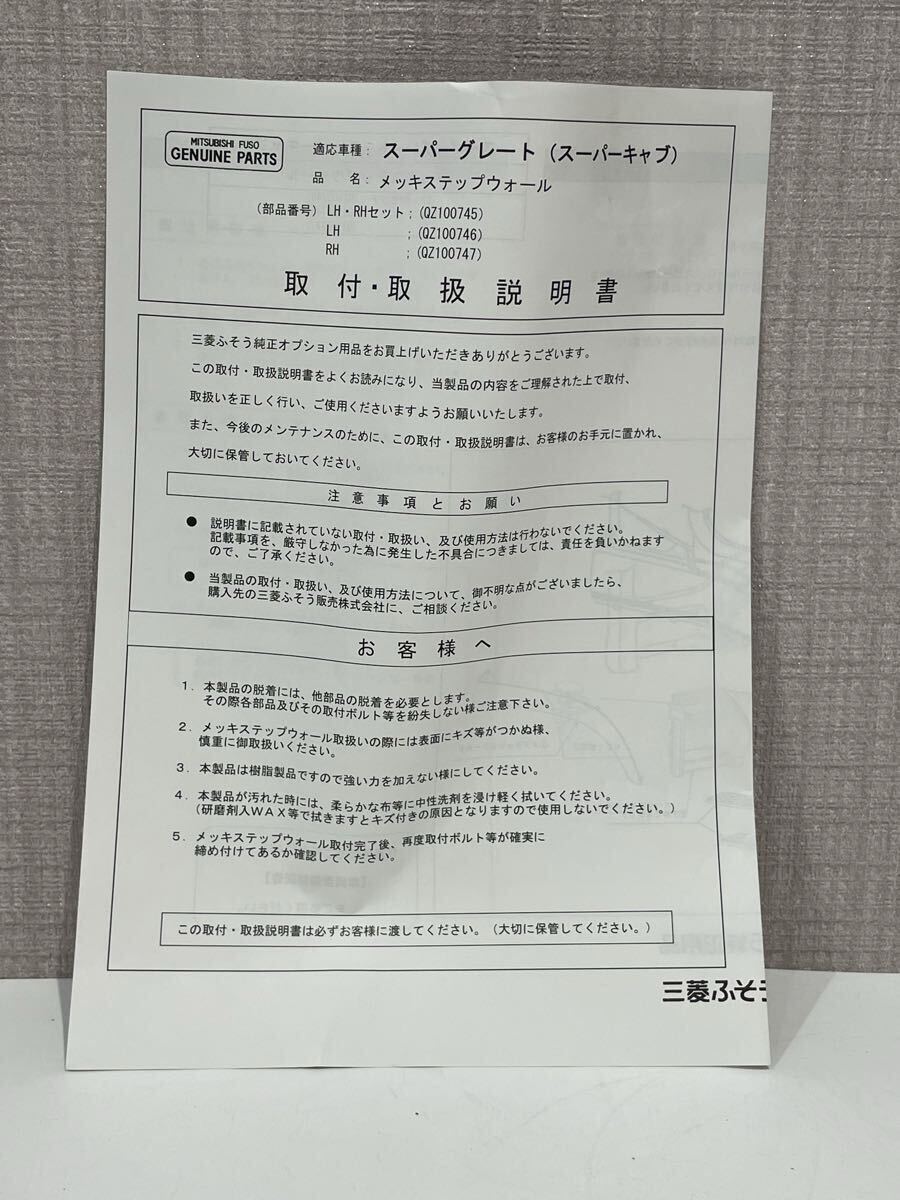 MITSUBISHI FUSO
GENUINE PARTS
適応車種: スーパーグレート (スーパーキャブ)
品 名: メッキステップウォール
(部品番号) LH・RHセット ; (QZ100745)
LH ; (QZ100746)
RH ; (QZ100747)
取付・取扱説明書
三菱ふそう純正オプション用品をお買上げいただきありがとうございます。
この取付・取扱説明書をよくお読みになり、当製品の内容をご理解された上で取付、
取扱いを正しく行い、ご使用くださいますようお願いいたします。
また、今後のメンテナンスのために、この取付・取扱説明書は、お客様のお手元に置かれ、
大切に保管しておいてください。
注意事項とお願い
● 説明書に記載されていない取付・取扱い、及び使用方法は行わないでください。
記載事項を、厳守しなかった為に発生した不具合につきましては、責任を負いかねます
ので、ご了承ください。
● 当製品の取付・取扱い、及び使用方法について、御不明な点がございましたら、
購入先の三菱ふそう販売株式会社に、ご相談ください。
お客様へ
1. 本製品の脱着には、他部品の脱着を必要とします。
その際各部品及びその取付ボルト等を紛失しない様ご注意下さい。
2. メッキステップウォール取扱いの際には表面にキズ等がつかぬ様、
慎重に御取扱いください。
3. 本製品は樹脂製品ですので強い力を加えない様にしてください。
4. 本製品が汚れた時には、柔らかな布等に中性洗剤を浸け軽く拭いてください。
(研磨剤入WAX等で拭きますとキズ付きの原因となりますので使用しないでください。)
5. メッキステップウォール取付完了後、再度取付ボルト等が確実に
締め付けてあるか確認してください。
この取付・取扱説明書は必ずお客様に渡してください。(大切に保管してください。)
三菱ふそう